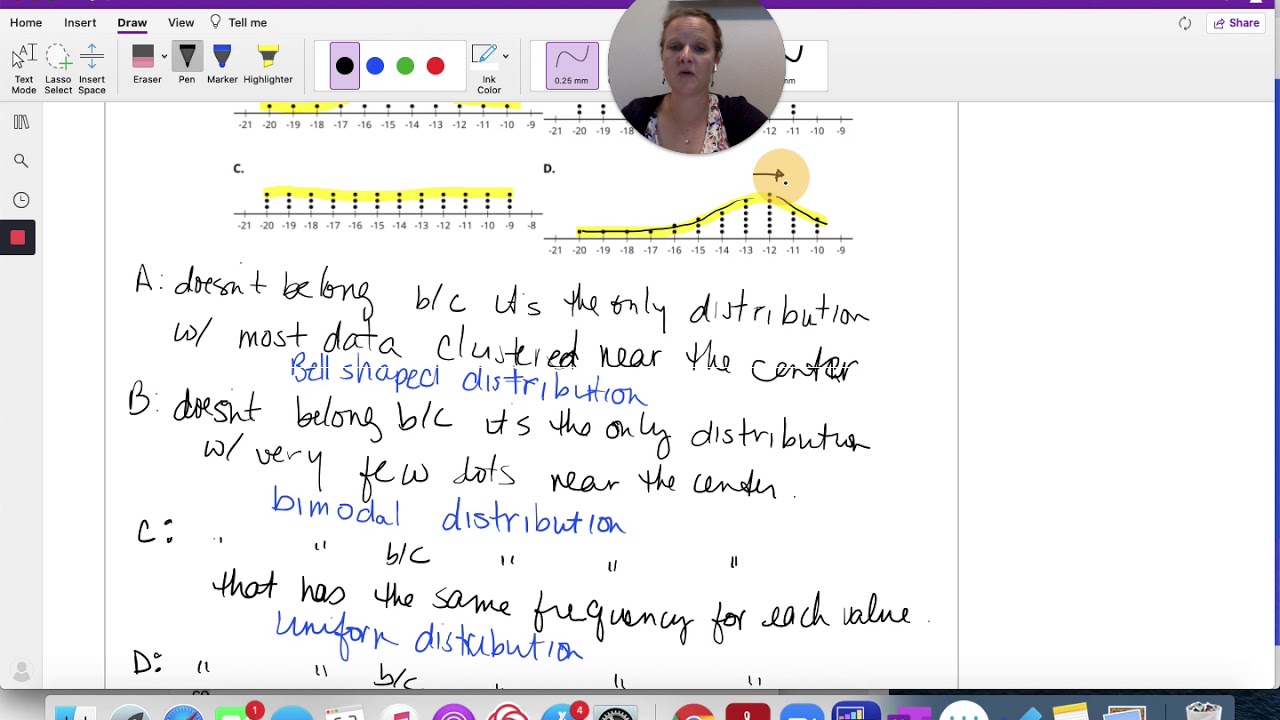 Home Insert Draw View Tell me Share
Text Mode
Lasso Select
Insert Space
Eraser
Pen
Marker
Highlighter
Ink Color
0.25 mm
mm
-21 -20 -19 -18 -17 -16 -15 -14 -13 -12 -11 -10 -9
-21 -20 -19 -12 -11 -10 -9
C.
D.
-21 -20 -19 -18 -17 -16 -15 -14 -13 -12 -11 -10 -9 -8
-21 -20 -19 -18 -17 -16 -15 -14 -13 -12 -11 -10 -9
A: doesn't belong b/c it's the only distribution
w/ most data clustered near the center
Bell shaped distribution
B: doesn't belong b/c it's the only distribution
w/ very few dots near the center.
bimodal distribution
C: " " b/c " " "
that has the same frequency for each value.
Uniform distribution
D: " " b/c " "
1
4